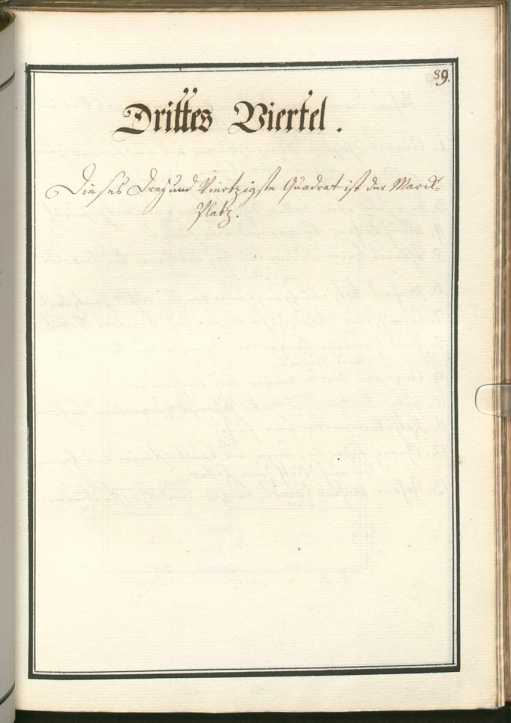 89.
Drittes Viertel.
Dieses Drey und Viertzigste Quadrat ist der Marck-
Platz.